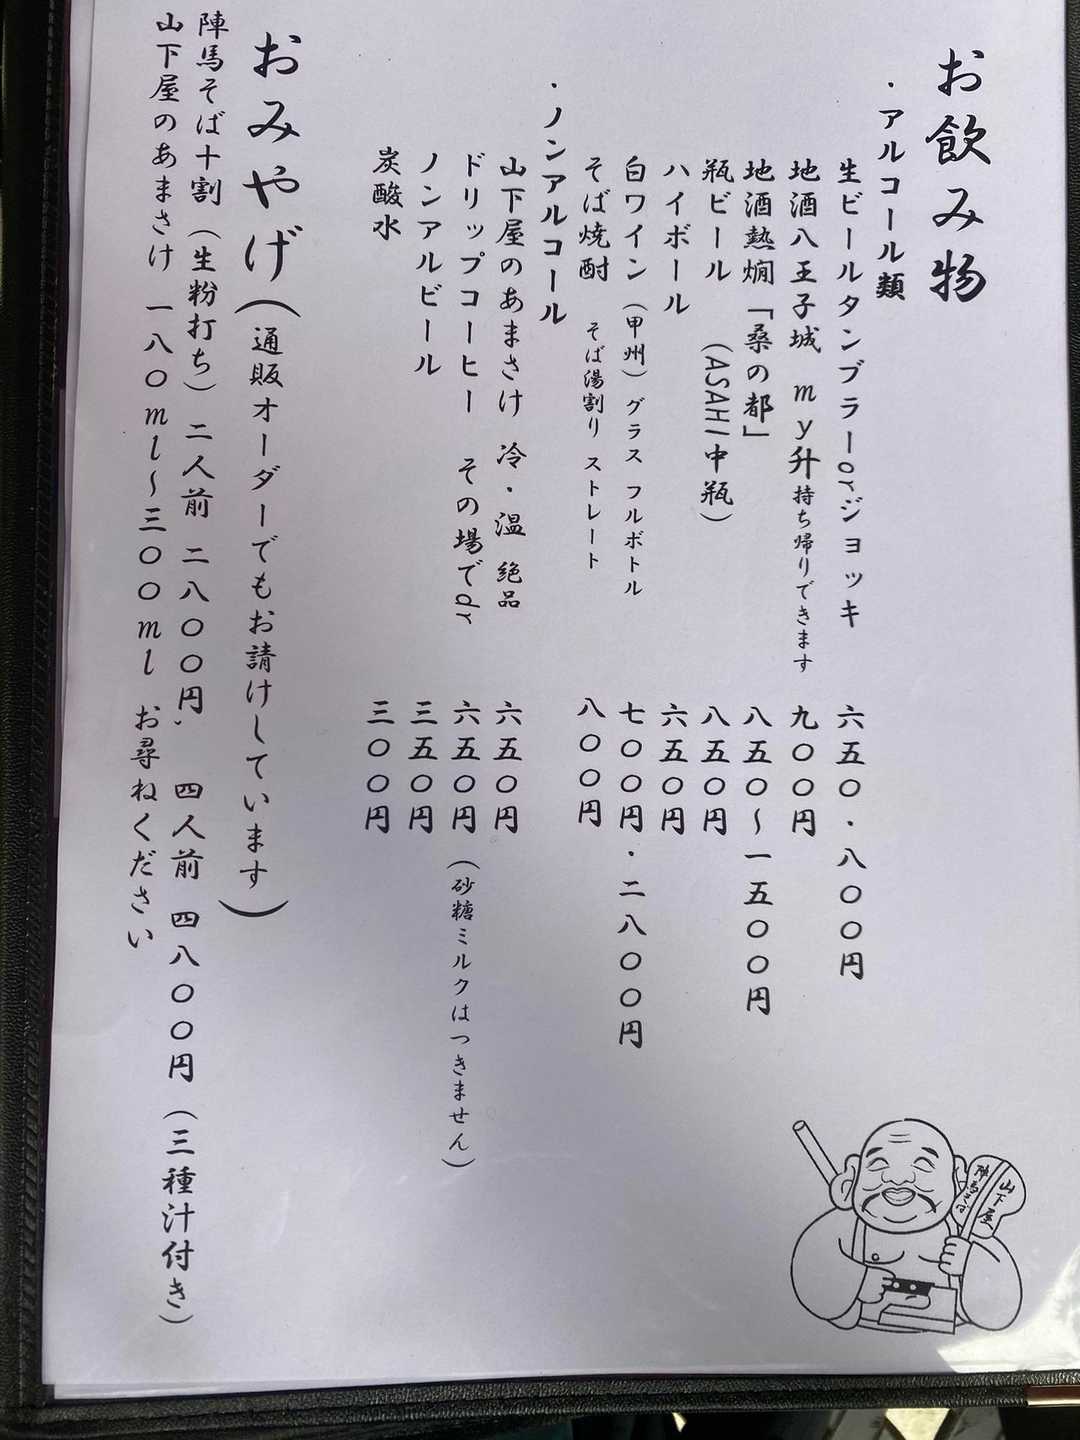 お飲み物
・アルコール類
生ビールタンブラーorジョッキ 六五〇・八〇〇円
地酒八王子城 my升持ち帰りできます 九〇〇円
地酒熱燗「桑の都」 八五〇～一五〇〇円
瓶ビール (ASAHI中瓶) 八五〇円
ハイボール 六五〇円
白ワイン(甲州)グラス フルボトル 七〇〇円・二八〇〇円
そば焼酎 そば湯割り ストレート 八〇〇円
・ノンアルコール
山下屋のあまさけ 冷・温 絶品 六五〇円
ドリップコーヒー その場でdr 六五〇円(砂糖ミルクはつきません)
ノンアルビール 三五〇円
炭酸水 三〇〇円
おみやげ(通販オーダーでもお請けしています)
陣馬そば十割(生粉打ち)二人前 二八〇〇円、 四人前 四八〇〇円(三種汁付き)
山下屋のあまさけ 一八〇ml～三〇〇ml お尋ねください
山下屋
陣馬そば